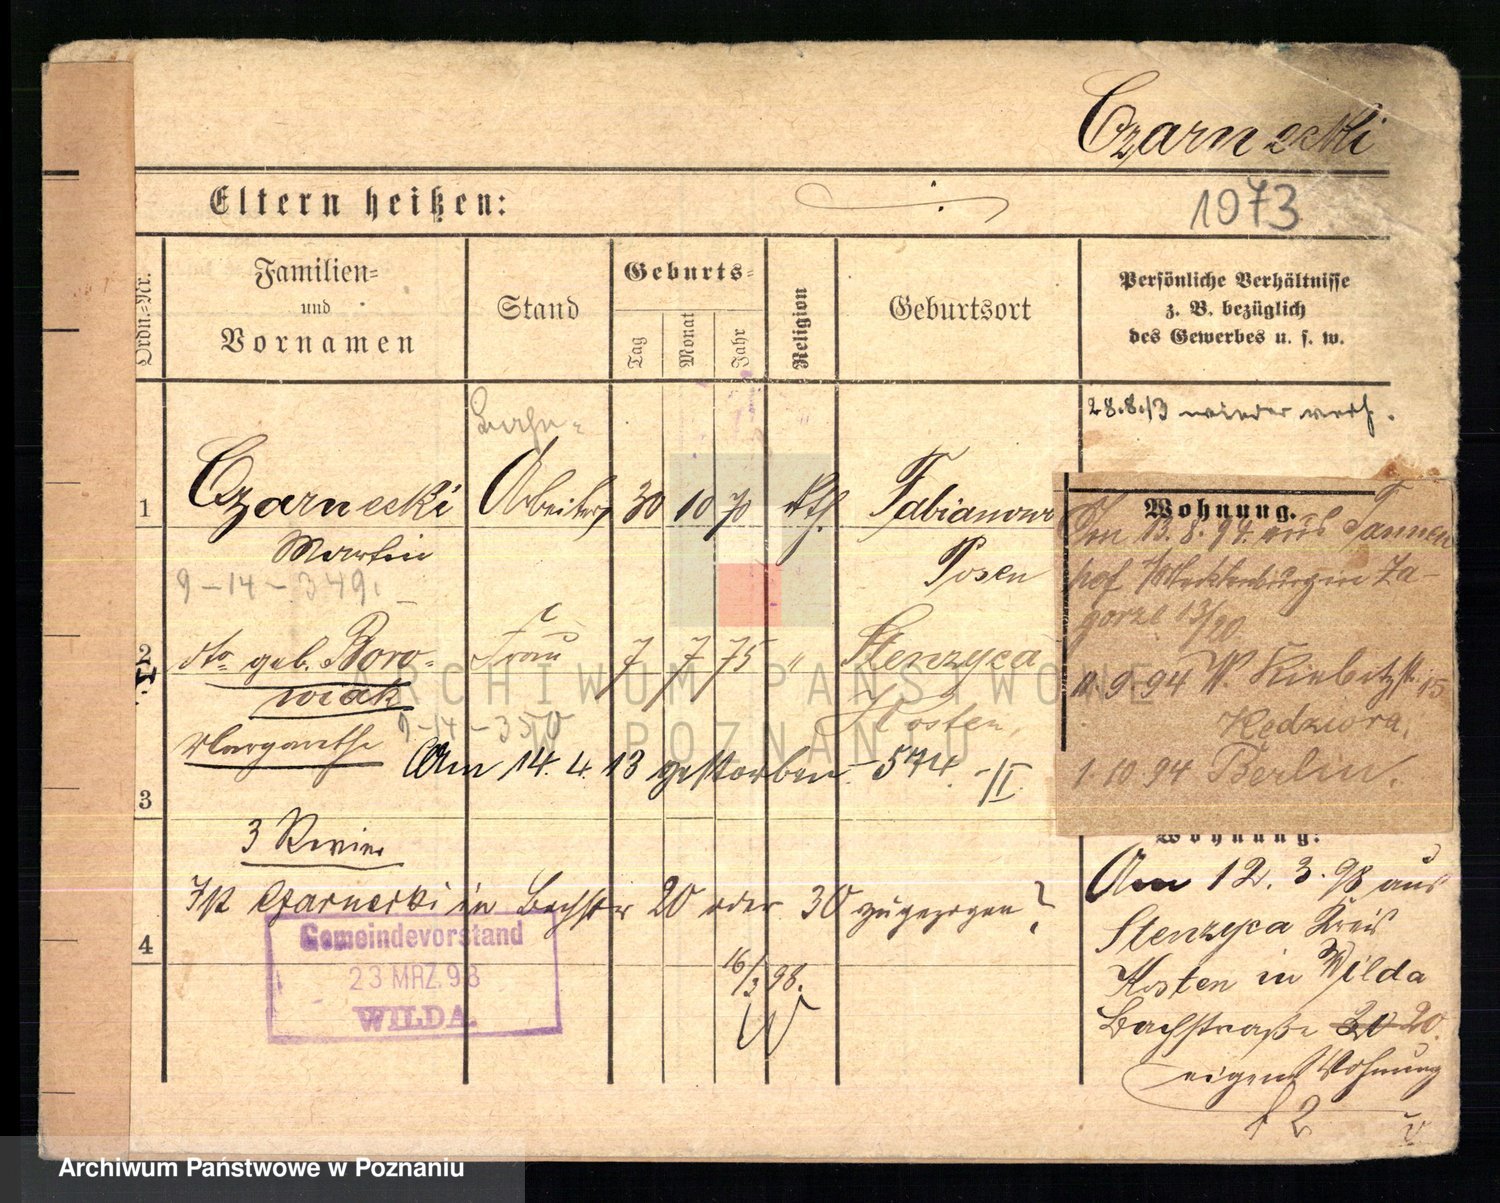 Czarnecki
Eltern heißen:
1073
Ordn.-Nr.
Familien-
und
Vornamen
Stand
Geburts-
Tag
Monat
Jahr
Religion
Geburtsort
Persönliche Verhältnisse
z. B. bezüglich
des Gewerbes u. s. w.
28.8.13 wieder verh.
1
Czarnecki
Arbeiter
30
10
70
kth.
Fabianowo
Martin
Posen
9-14-349.
2
dto geb. Boro-
wiak
Frau
7
7
75
"
Stenzyca
Kosten
Margarethe
9-14-350
Am 14.4.13 gestorben - 574 -/II
3
3 Revier
Ist Czarnecki in Bachstr 20 oder 30 zugezogen?
16/3 98.
4
Gemeindevorstand
23 MRZ. 98
WILDA.
Wohnung.
Am 13.8.94 aus Tannen
hof Mecklenburg in Za-
gorze 13/20
11.9.94 W. Kiebitzstr. 15
Hedzwora.
1.10.94 Berlin.
Wohnung:
Am 12.3.98 aus
Stenzyca Kreis
Kosten in Wilda
Bachstraße 30 20.
eigene Wohnung
ARCHIWUM PAŃSTWOWE
W POZNANIU
Archiwum Państwowe w Poznaniu